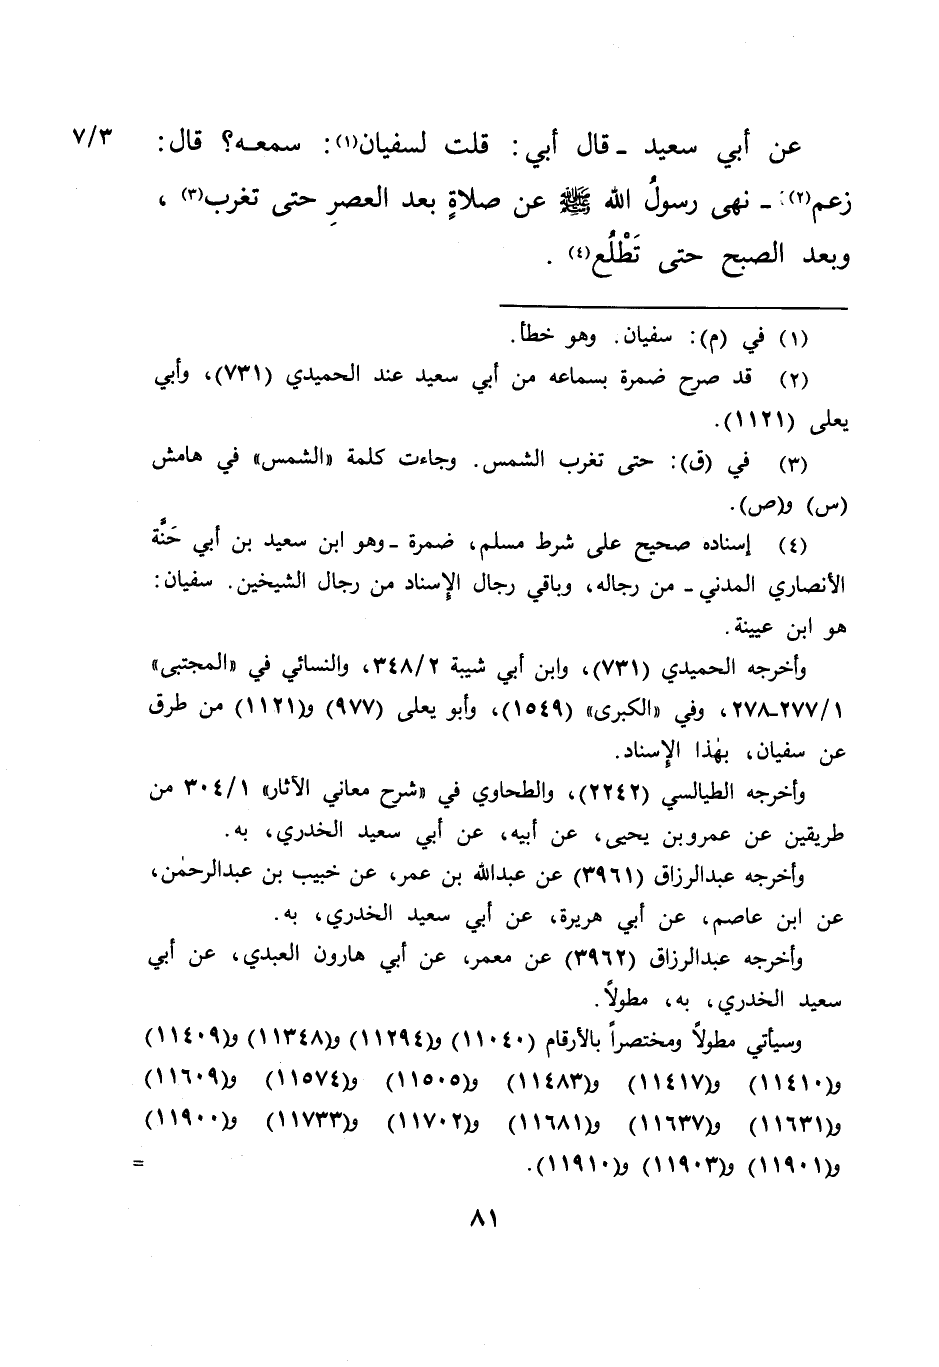 عن أبي سعيد ـ قال أبي: قلت لسفيان(١): سمعه؟ قال: ٧/٣
زعم(٢): ـ نهى رسولُ الله ﷺ عن صلاةٍ بعد العصرِ حتى تغرب(٣)،
وبعد الصبح حتى تَطْلُع(٤).
(١) في (م): سفيان. وهو خطأ.
(٢) قد صرح ضمرة بسماعه من أبي سعيد عند الحميدي (٧٣١)، وأبي
يعلى (١١٢١).
(٣) في (ق): حتى تغرب الشمس. وجاءت كلمة «الشمس» في هامش
(س) و(ص).
(٤) إسناده صحيح على شرط مسلم، ضمرة ـ وهو ابن سعيد بن أبي حَنَّة
الأنصاري المدني ـ من رجاله، وباقي رجال الإسناد من رجال الشيخين. سفيان:
هو ابن عيينة.
وأخرجه الحميدي (٧٣١)، وابن أبي شيبة ٣٤٨/٢، والنسائي في «المجتبى»
٢٧٧/١ـ٢٧٨، وفي «الكبرى» (١٥٤٩)، وأبو يعلى (٩٧٧) و(١١٢١) من طرق
عن سفيان، بهٰذا الإسناد.
وأخرجه الطيالسي (٢٢٤٢)، والطحاوي في «شرح معاني الآثار» ٣٠٤/١ من
طريقين عن عمرو بن يحيى، عن أبيه، عن أبي سعيد الخدري، به.
وأخرجه عبدالرزاق (٣٩٦١) عن عبدالله بن عمر، عن خبيب بن عبدالرحمٰن،
عن ابن عاصم، عن أبي هريرة، عن أبي سعيد الخدري، به.
وأخرجه عبدالرزاق (٣٩٦٢) عن معمر، عن أبي هارون العبدي، عن أبي
سعيد الخدري، به، مطولاً.
وسيأتي مطولاً ومختصراً بالأرقام (١١٠٤٠) و(١١٢٩٤) و(١١٣٤٨) و(١١٤٠٩)
و(١١٤١٠) و(١١٤١٧) و(١١٤٨٣) و(١١٥٠٥) و(١١٥٧٤) و(١١٦٠٩)
و(١١٦٣١) و(١١٦٣٧) و(١١٦٨١) و(١١٧٠٢) و(١١٧٣٣) و(١١٩٠٠)
و(١١٩٠١) و(١١٩٠٣) و(١١٩١٠). =
٨١